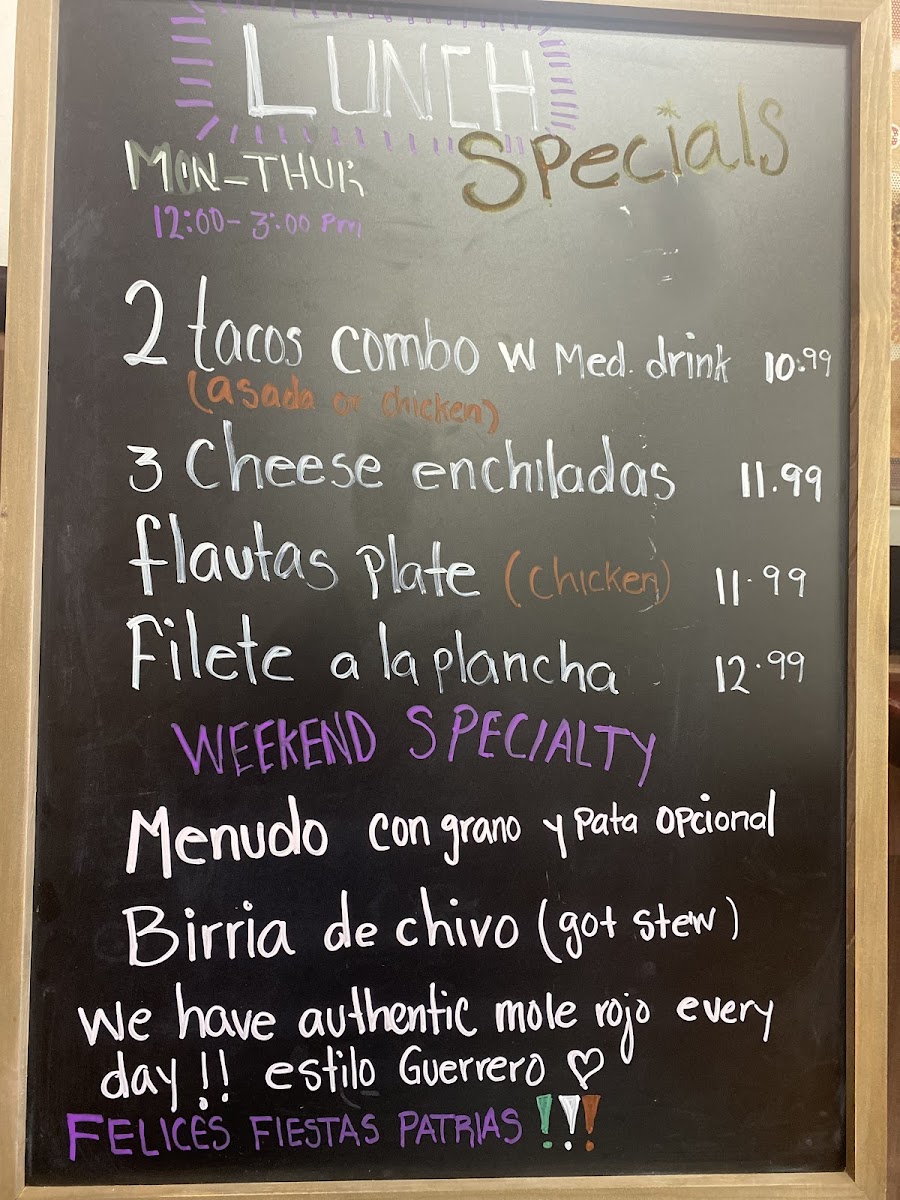 LUNCH
Specials
MON-THUR
12:00-3:00 Pm
2 tacos combo w Med. drink 10.99
(asada or chicken)
3 Cheese enchiladas 11.99
flautas Plate (chicken) 11.99
Filete a la plancha 12.99
WEEKEND SPECIALTY
Menudo con grano y pata opcional
Birria de chivo (got stew)
We have authentic mole rojo every
day!! estilo Guerrero ♡
FELICES FIESTAS PATRIAS !!!